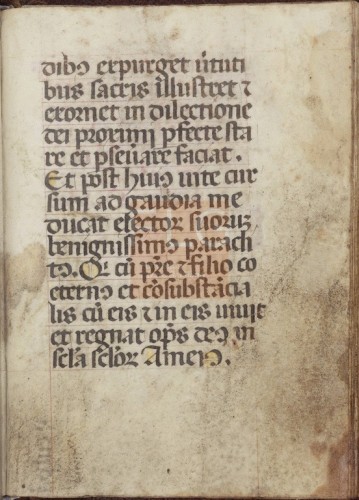 dibꝯ expurget ũtuti
bus sacris illustret ⁊
exornet in dilectione
dei proximi ꝑfecte sta
re et ꝑseũare faciat.
Et post huiꝯ uite cur
sum ad gaudia me
ducat elector suoruꝫ
benignissimꝯ paracli
tꝯ. Qͥ cũ pr̃e ⁊ filio co
eternꝯ et cõsubstãcia
lis cũ eis ⁊ in eis uiuit
et regnat op̃s deꝯ in
scl̃a scl̃oꝝ Amen.